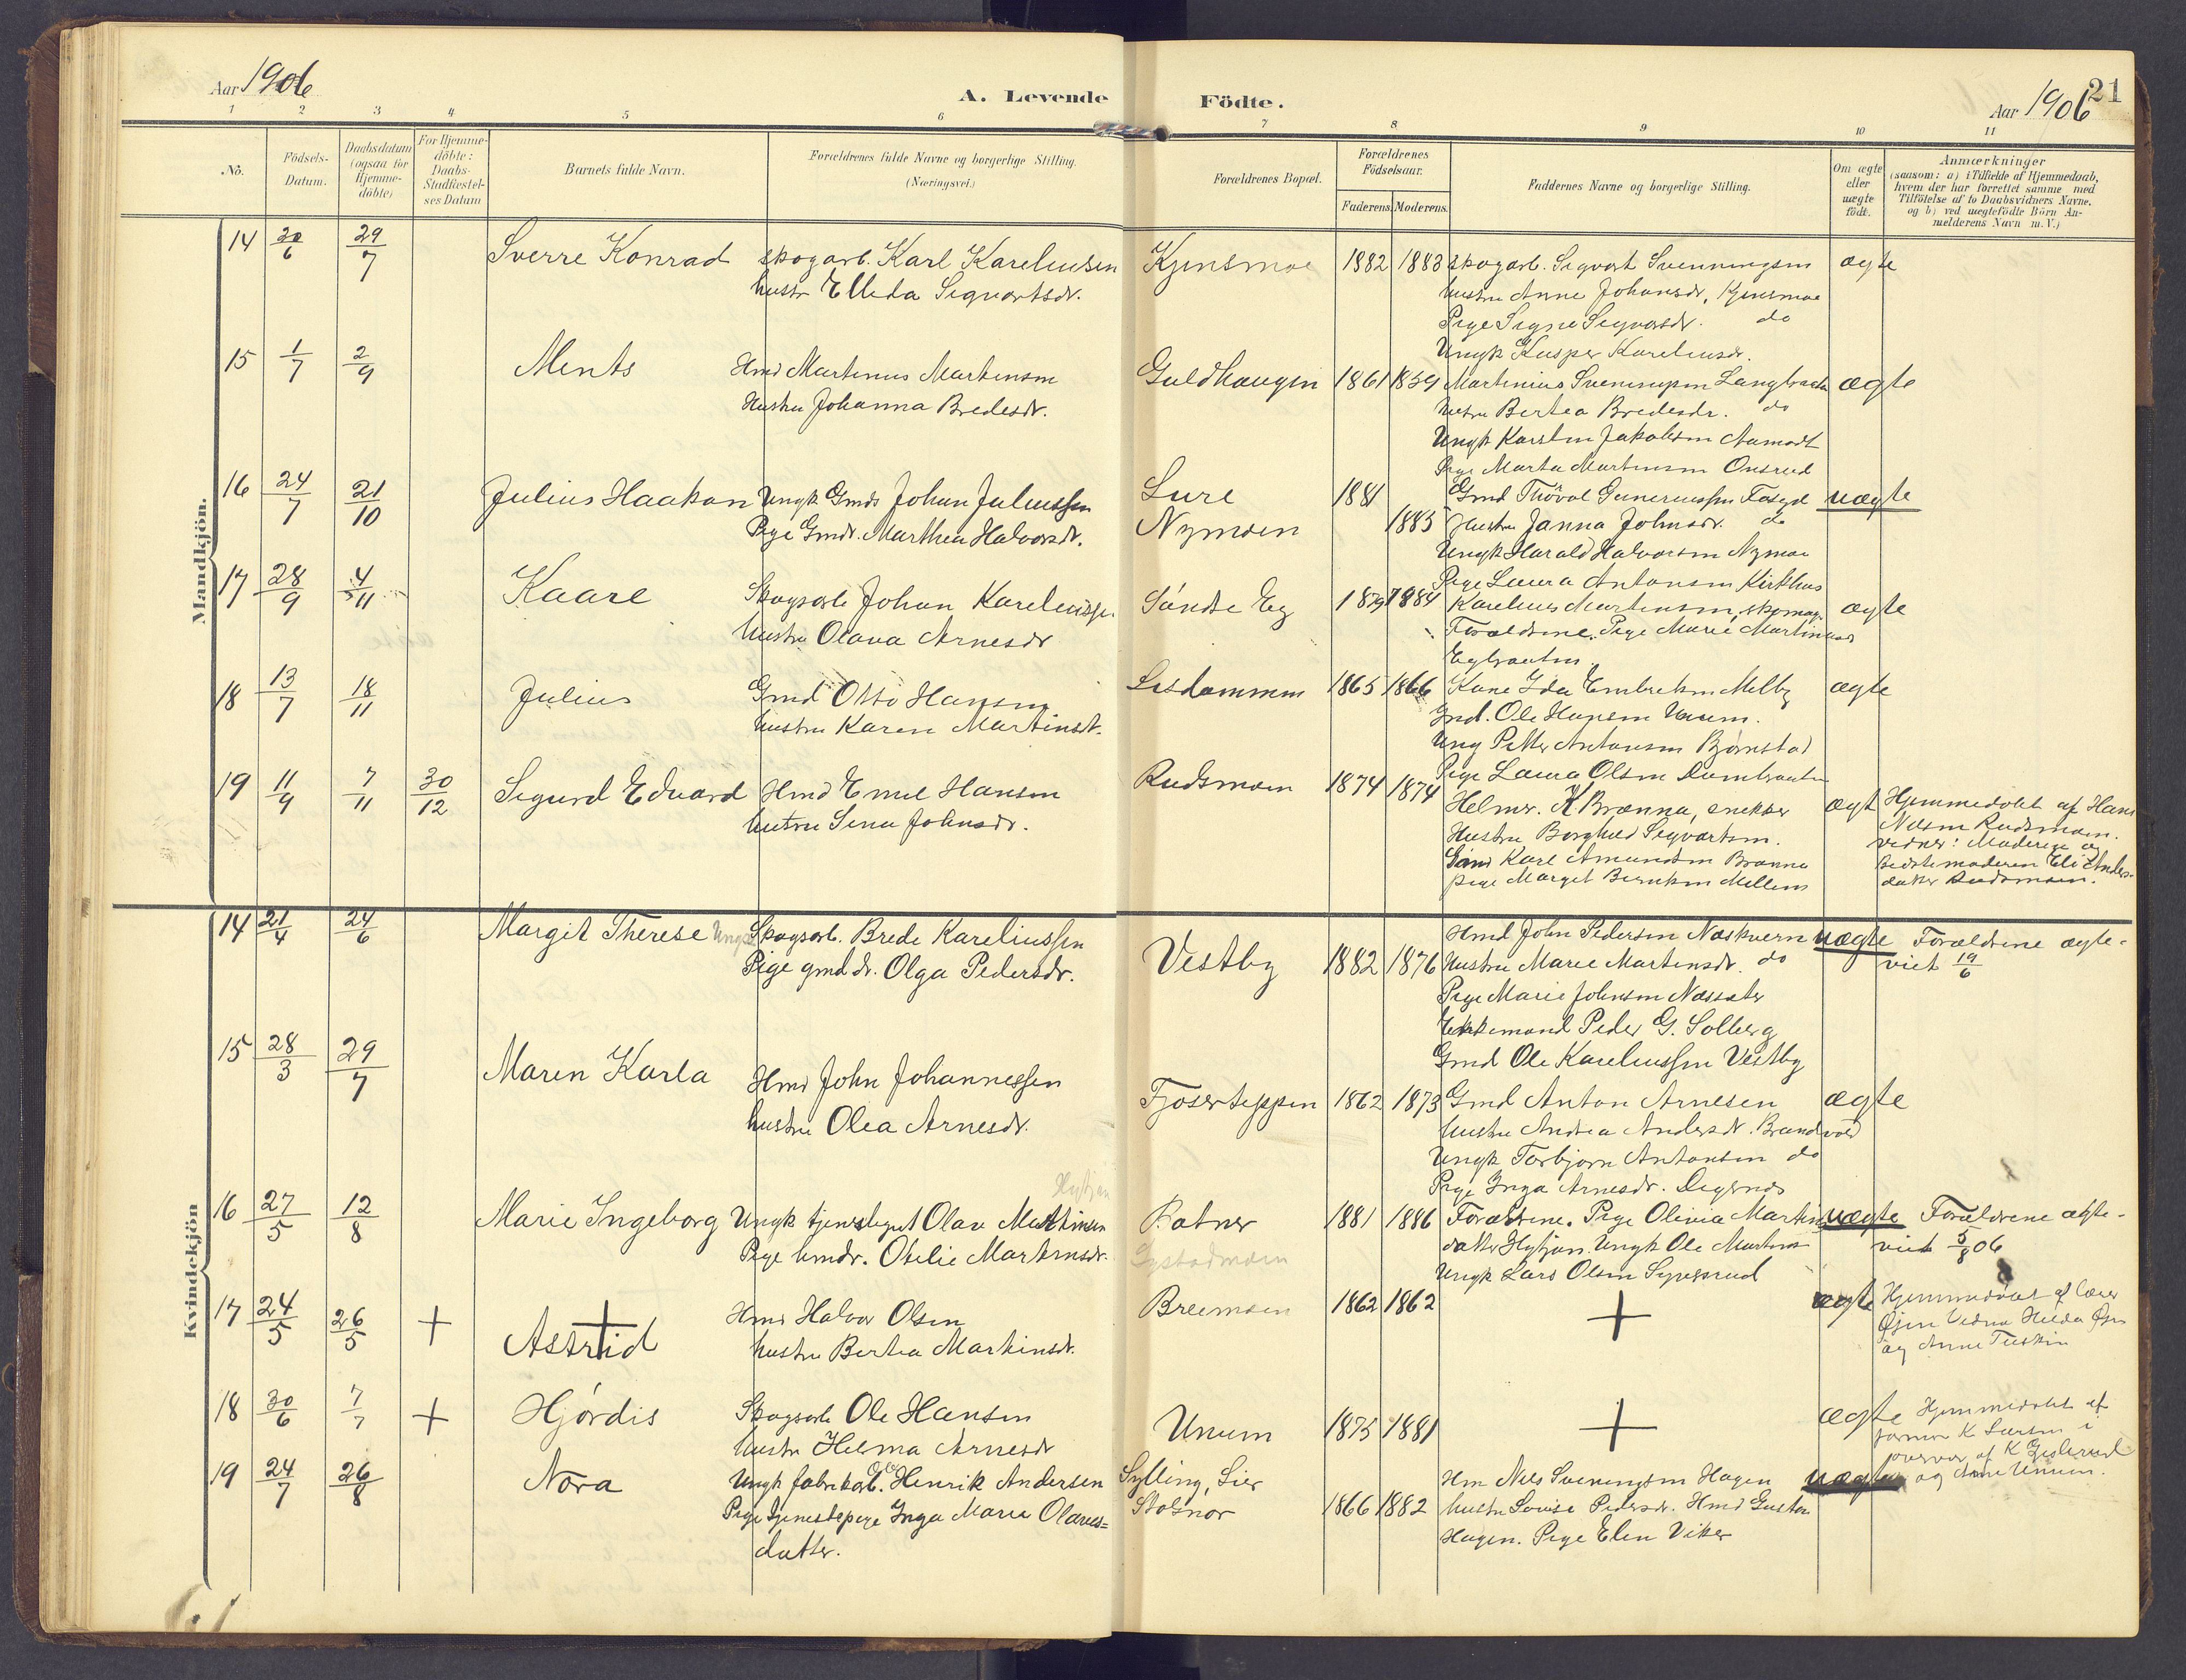 Aar 1906
A. Levende Födte.
Aar 1906
21
1 2 3 4 5 6 7 8 9 10 11
No.
Födsels-
Datum.
Daabsdatum
(ogsaa for
Hjemme-
döbte)
For Hjemme-
döbte:
Daabs-
Stadfæstel-
ses Datum
Barnets fulde Navn.
Forældrenes fulde Navne og borgerlige Stilling.
(Næringsvei.)
Forældrenes Bopæl.
Forældrenes
Födselsaar.
Faderens. Moderens.
Faddernes Navne og borgerlige Stilling.
Om ægte
eller
uægte
födt.
Anmærkninger
(saasom: a) i Tilfælde af Hjemmedaab,
hvem der har forrettet samme med
Tilföielse af to Daabsvidners Navne.
og b) ved uægtefödte Börn An-
melderens Navn m.V.)
Mandkjön.
14 30/6 29/7 Sverre Konrad skogarb. Karl Kareliusen Kjensmoe 1882 1883 skogarb. Sigvart Svenningsen ægte
hustr Elleda Sigvartsdr. hustru Anne Johansdr, Kjensmoe
Pige Signe Sigvarsdr. do
Ungk Kasper Kareliusdr.
15 1/7 2/9 Ments Hmd Martinus Martinsen Guldhaugen 1861 1859 Martinius Svenningsen Langbraaten ægte
Hustru Johanna Bredesdr. hustru Bertea Bredesdr. do
Ungk Karsten Jakobsen Aamodt
Pige Marta Martinsen Onsrud
16 24/7 21/10 Julius Haakon Ungk Gmds Johan Juliussen Lure 1881 Gmd Thöval Gunerussen uægte
Pige Gmdr. Marthea Halvorsdr. Nymoen 1883 Hustru Janna Johnsdr. do
Ungk Harald Halvorsen Nymoe
Pige Laura Antonsen Kirkhus
17 28/9 4/11 Kaare Skogsarb Johan Kareliussen Söndre Eg 1879 1884 Karelius Martinsen, skomag. ægte
hustru Olava Arnesdr Forældrene. Pige Marie Martinusdr
Egbraaten
18 13/7 18/11 Julius Gmd Otto Hansen 1865 1866 Kone Ida Embretsen Melby ægte
hustru Karen Martinsdr. Gmd. Ole Hansen Unum.
Ung Petter Antonsen Björnstad
Pige Laura Olsen
19 11/9 7/11 30/12 Sigurd Edvard Hmd Emil Hansen Rudsmoen 1874 1874 Helmer. K. Brænna, snekker ægt Hjemmedöbt af Hans
hustru Lina Johnsdr. Hustru Borghild Sigvartsen. Nilsen Rudsmoen.
Karl Amundsen Brænna vidner: Moderen og
Pige Margit Berntsen Mellem bedstemoderen Eli Anders-
datter Rudsmoen.
Kvindekjön
14 21/4 24/6 Margit Therese Skogsarb. Brede Kareliussen Vestby 1882 1876 Hmd John Pedersen Næskvern uægte Forældrene ægte-
Pige gmd dr. Olga Pedersdr. Hustru Marie Martinsdr. do viet 19/6
Pige Marie Johnsen Næssæter
Enkemand Peder G. Solberg
Gmd Ole Kareliussen Vestby
15 28/3 29/7 Maren Karla Hmd John Johannessen Fjoserteppen 1862 1873 Gmd Anton Arnesen ægte
hustru Olea Arnesdr. hustru Andrea Andersdr. Brandvold
Ungk Torbjörn Antonsen do
Pige Inga Arnesdr. Degernes
16 27/5 12/8 Marie Ingeborg Ungk tjenestegut Olav Martinsen Ratner 1881 1886 Forældrene. Pige Olivia Martins uægte Forældrene ægte-
Pige Otelie Martinsdr. datter Hytjan. Ungk Ole Martins viet 5/8 06
Ungk Lars Olsen
17 24/5 26/5 + Astrid Hmd Halvor Olsen Breemoen 1862 1862 + ægte Hjemmedöbt af lærer
hustru Bertea Martinsdr. Öjen Vidne Hilda Öjen
og Anne
18 30/6 7/7 + Hjördis Skogsarb Ole Hansen Unum 1875 1881 + ægte Hjemmedöbt af
hustr Helma Arnesdr K Larsen i
overvær af K Gislerud
og Unum.
19 24/7 26/8 Nora Ungk fabrikarb. Henrik Andersen Sylling, Lier Hm Nils Sveningsen Hagen uægte
Pige tjenestepige Inga Marie Olaves= Stosnor 1866 1882 hustru Lovise Pedersdr. Hmd Gustav
datter. Hagen. Pige Elen Viker